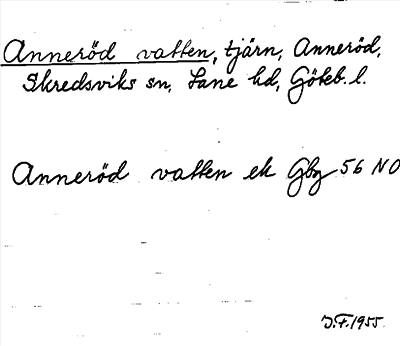 Anneröd vatten, tjärn, Anneröd,
Skredsviks sn, Lane hd, Göteb. l.
Anneröd vatten ek Gbg 56 NO
J.F. 1955.